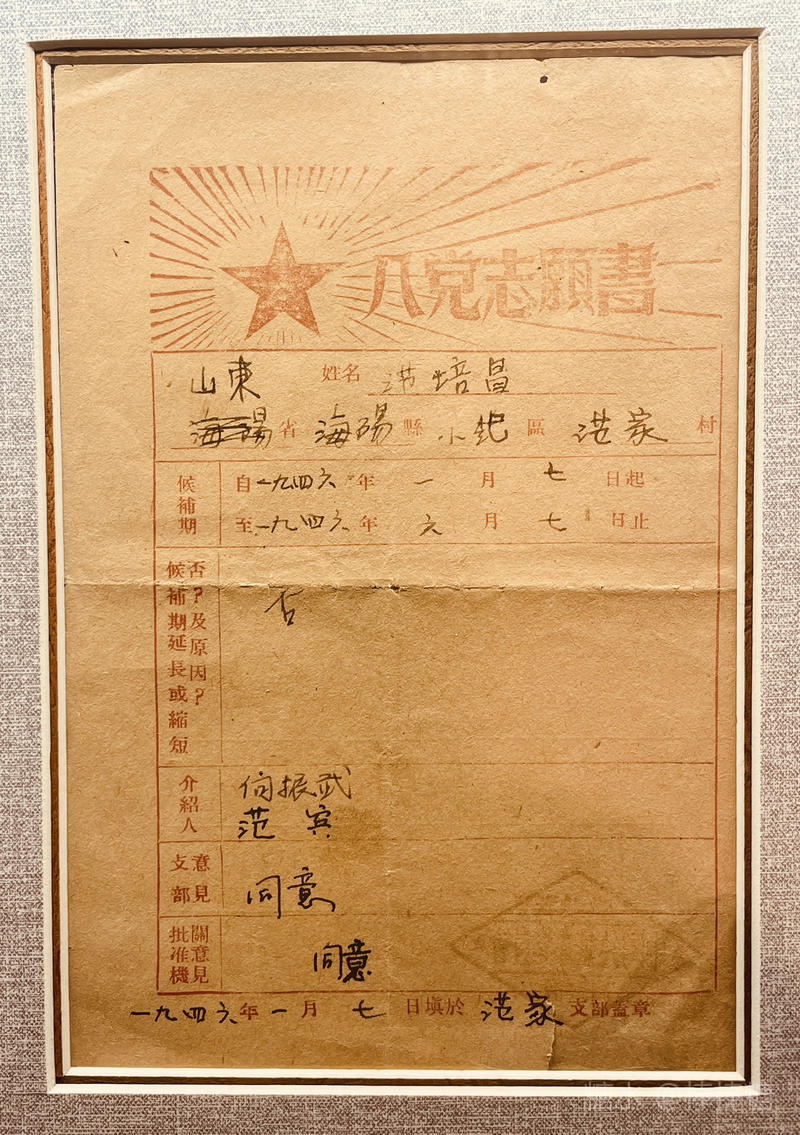 入党志願書
山東 姓名 范培昌
海陽省 海陽縣 小紀區 范家村
候補期
自一九四六年一月七日起
至一九四六年六月七日止
候補期延長或縮短
否?及原因?
否
介紹人
振武
范宾
支部意見
同意
批准機關意見
同意
一九四六年一月七日填於范家支部蓋章